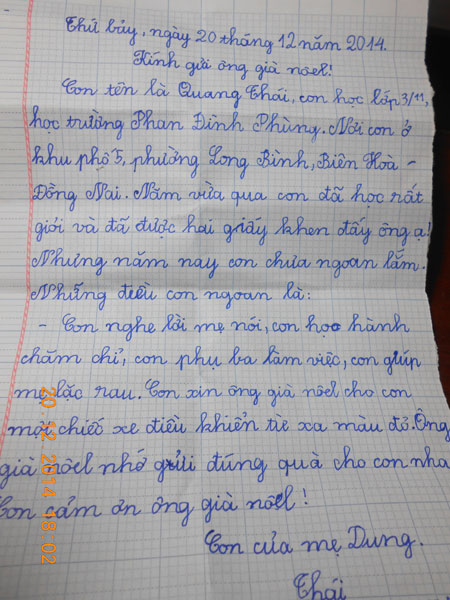 Thứ bảy, ngày 20 tháng 12 năm 2014.
Kính gửi ông già nôel!
Con tên là Quang Thái, con học lớp 3/11,
học trường Phan Đình Phùng. Nơi con ở
khu phố 5, phường Long Bình, Biên Hoà -
Đồng Nai. Năm vừa qua con đã học rất
giỏi và đã được hai giấy khen đấy ông ạ!
Nhưng năm nay con chưa ngoan lắm.
Những điều con ngoan là:
- Con nghe lời mẹ nói, con học hành
chăm chỉ, con phụ ba làm việc, con giúp
mẹ lặc rau. Con xin ông già nôel cho con
một chiếc xe điều khiển từ xa màu đỏ. Ông
già nôel nhớ gửi đúng quà cho con nha
Con cảm ơn ông già nôel!
Con của mẹ Dung.
Thái
20.12.2014 18:02